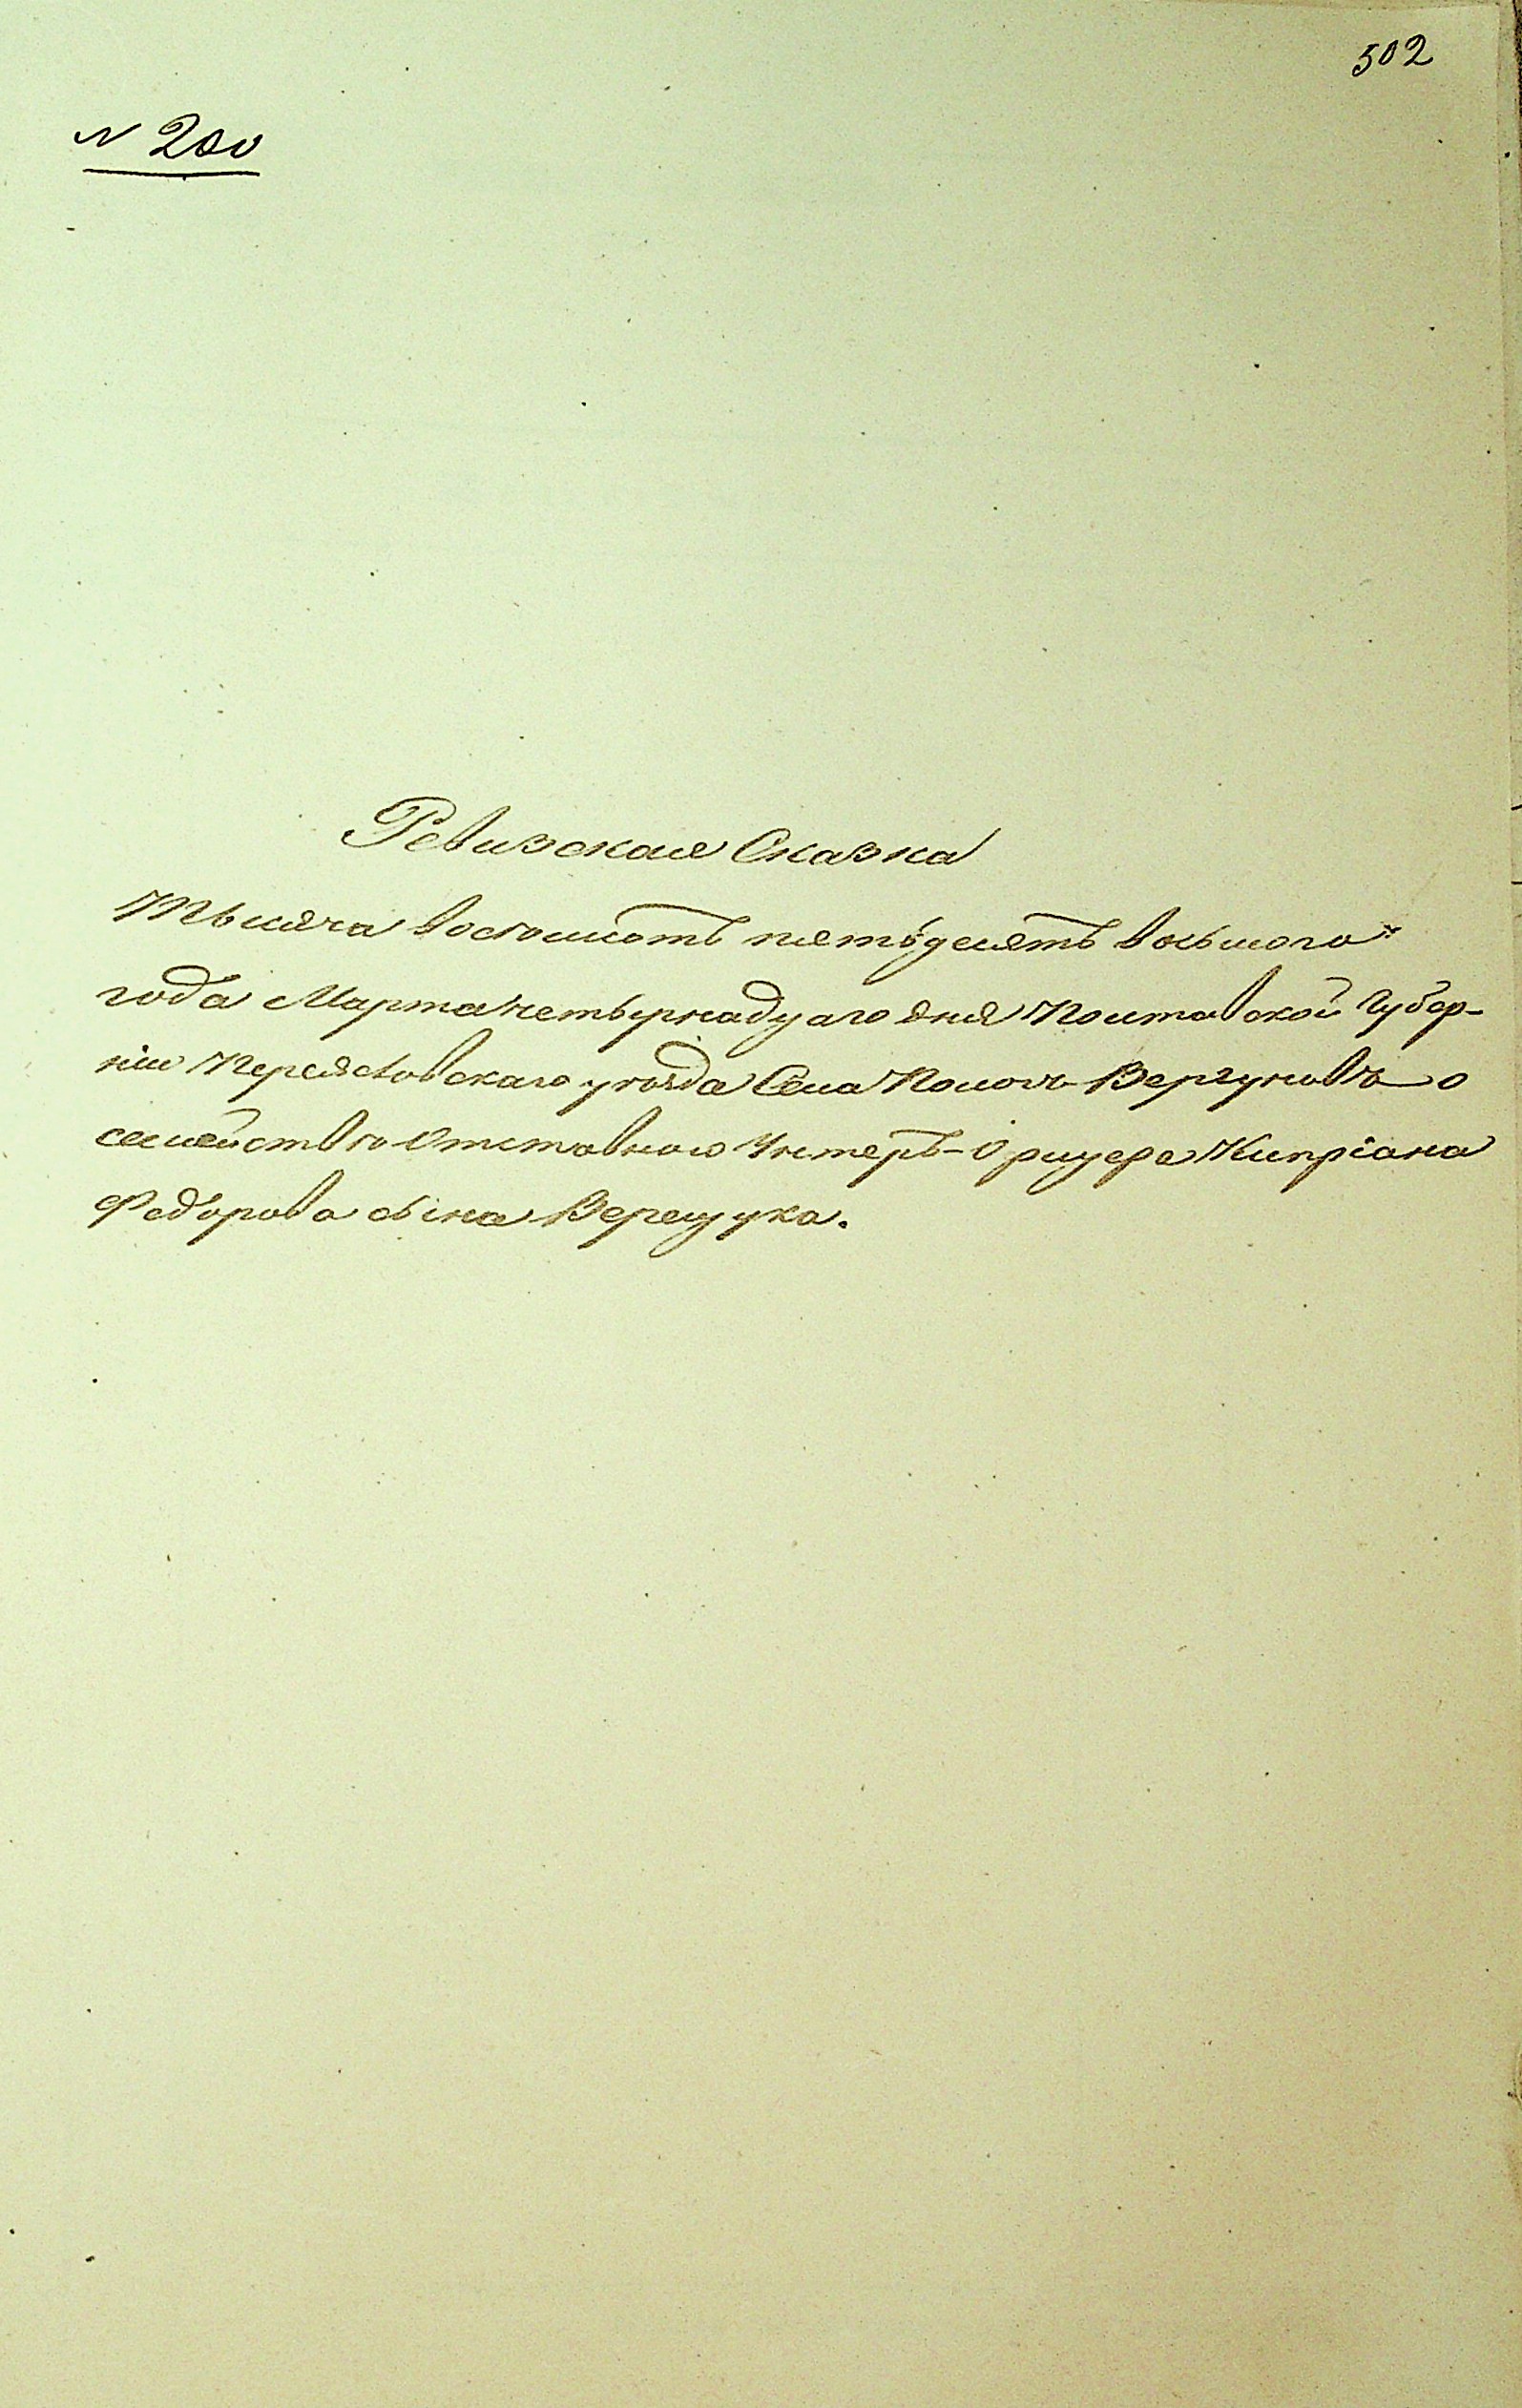 502
№ 200
Ревизская Сказка
Тысяча восемьсотъ пятьдесятъ восьмаго
года Марта четырнадцаго дня Полтавской Губер-
ніи Переяславскаго уѣзда Села Вергуновъ о
семействѣ Отставнаго Унтеръ-Офицера Кипріана
Федорова сына Верещука.